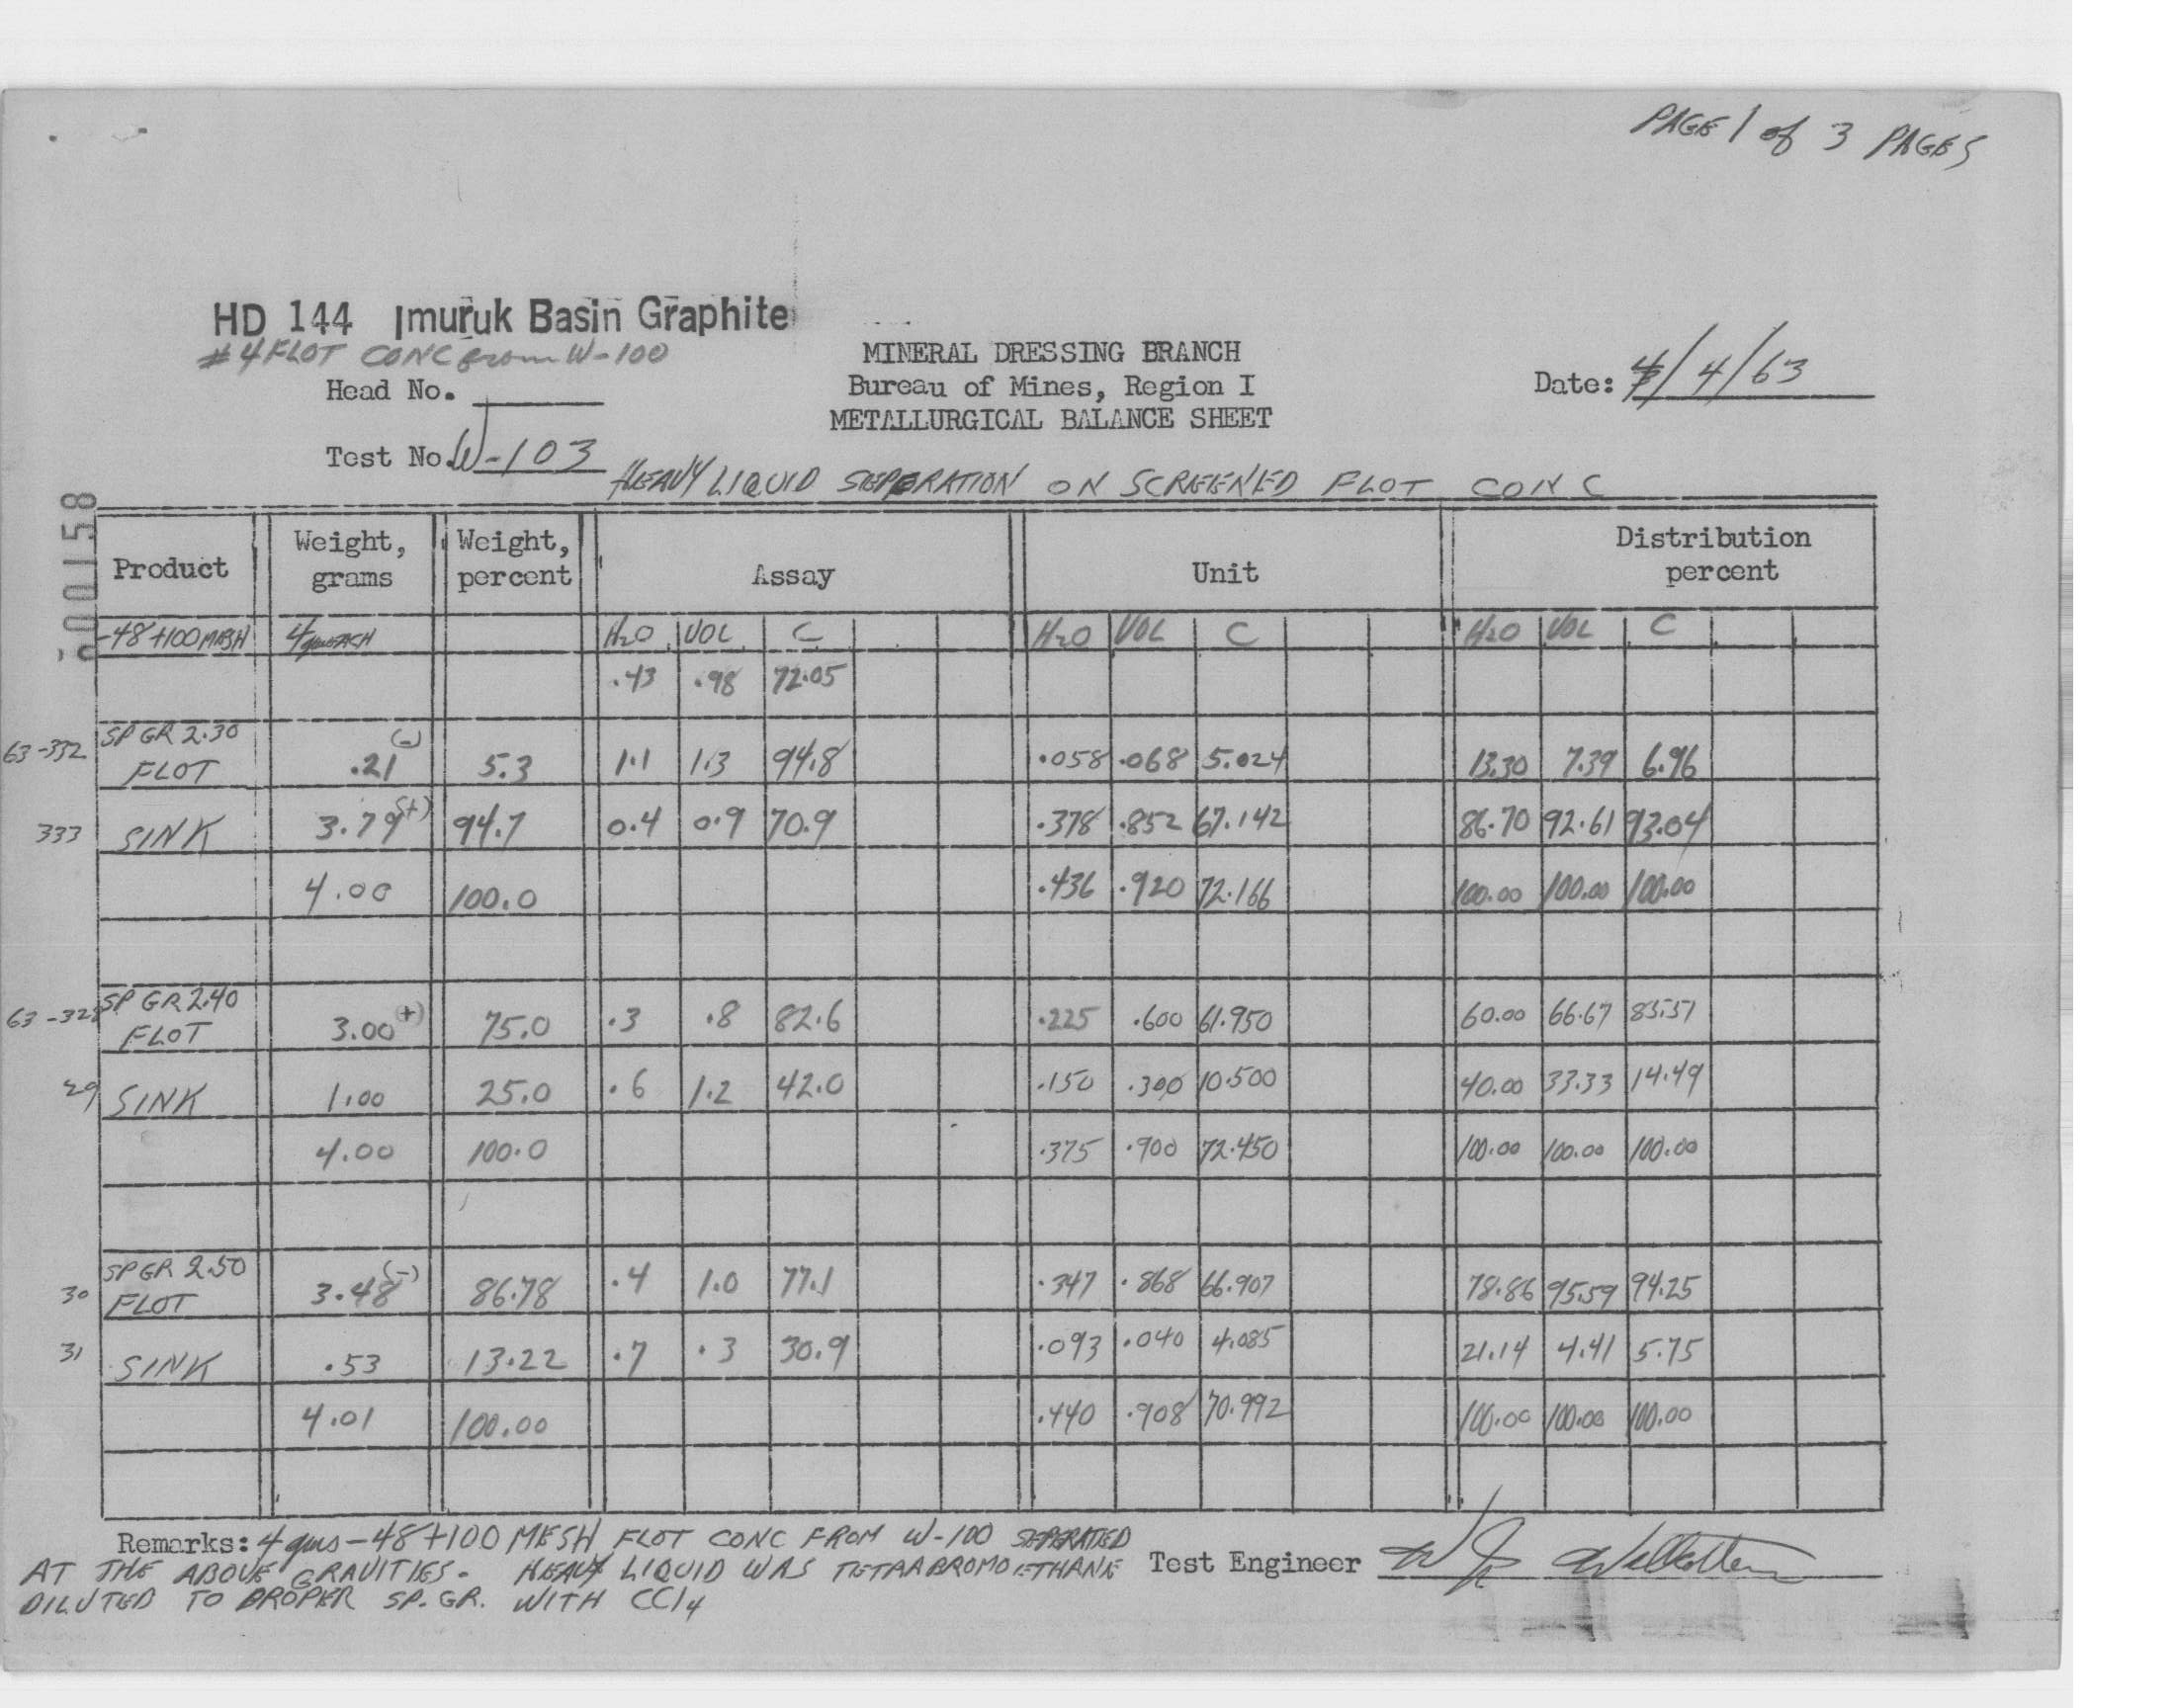 PAGE 1 of 3 PAGES
HD 144 Imuruk Basin Graphite
#4 FLOT CONC from W-100
Head No.
Test No. W-103
MINERAL DRESSING BRANCH
Bureau of Mines, Region I
METALLURGICAL BALANCE SHEET
Date: 4/4/63
HEAVY LIQUID SEPERATION ON SCREENED FLOT CONC
Product Weight, grams Weight, percent Assay Unit Distribution percent
-48+100 MESH 4 gms EACH H2O VOL C H2O VOL C H2O VOL C
.43 .98 72.05
63-332 SP GR 2.30 FLOT .21 (-) 5.3 1.1 1.3 94.8 .058 .068 5.024 13.30 7.39 6.96
333 SINK 3.79 (+) 94.7 0.4 0.9 70.9 .378 .852 67.142 86.70 92.61 93.04
4.00 100.0 .436 .920 72.166 100.00 100.00 100.00
63-328 SP GR 2.40 FLOT 3.00 (+) 75.0 .3 .8 82.6 .225 .600 61.950 60.00 66.67 85.51
29 SINK 1.00 25.0 .6 1.2 42.0 .150 .300 10.500 40.00 33.33 14.49
4.00 100.0 .375 .900 72.450 100.00 100.00 100.00
30 SP GR 2.50 FLOT 3.48 (-) 86.78 .4 1.0 77.1 .347 .868 66.907 78.86 95.59 94.25
31 SINK .53 13.22 .7 .3 30.9 .093 .040 4.085 21.14 4.41 5.75
4.01 100.00 .440 .908 70.992 100.00 100.00 100.00
Remarks: 4 gms -48+100 MESH FLOT CONC FROM W-100 SEPERATED
AT THE ABOVE GRAVITIES. HEAVY LIQUID WAS TETRABROMOETHANE
DILUTED TO PROPER SP. GR. WITH CCl4
Test Engineer